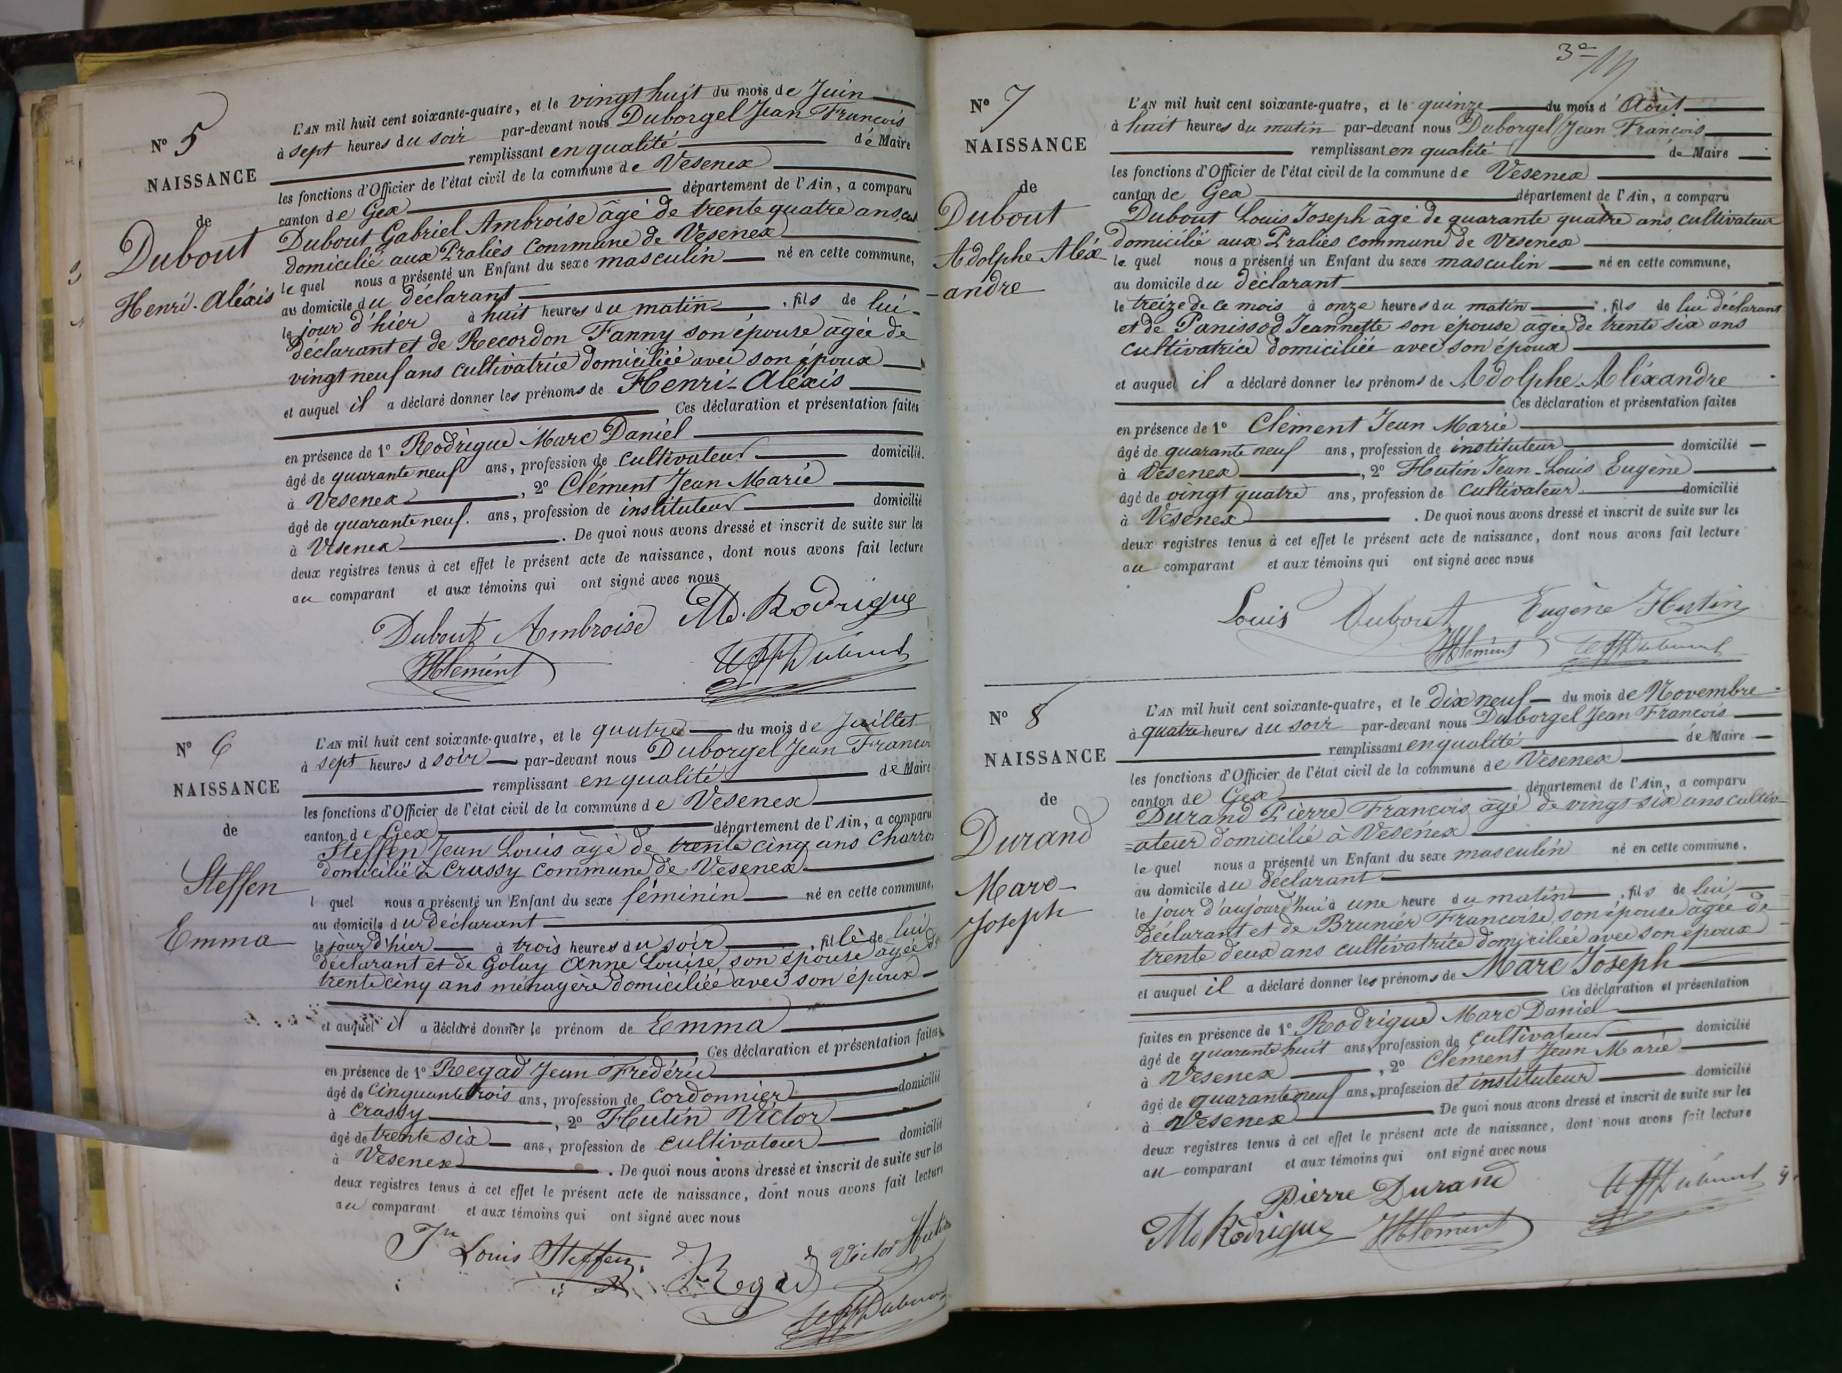 N° 5
NAISSANCE
de
Dubout
Henri-Aléxis
L'AN mil huit cent soixante-quatre, et le vingt huit du mois de Juin
à sept heures du soir par-devant nous Duborgel Jean François
remplissant en qualité de Maire
les fonctions d'Officier de l'état civil de la commune de Vesenex
canton de Gex département de l'Ain, a comparu
Dubout Gabriel Ambroise âgé de trente quatre ans
domicilié aux Praliès commune de Vesenex
le quel nous a présenté un Enfant du sexe masculin né en cette commune,
au domicile du déclarant
le jour d'hier à huit heures du matin, fils de lui
déclarant et de Recordon Fanny son épouse âgée de
vingt neuf ans cultivatrice domiciliée avec son époux
et auquel il a déclaré donner les prénoms de Henri-Aléxis
Ces déclaration et présentation faites
en présence de 1° Rodrigue Marc Daniel
âgé de quarante neuf ans, profession de cultivateur domicilié
à Vesenex, 2° Clément Jean Marie
âgé de quarante neuf ans, profession de instituteur domicilié
à Vesenex. De quoi nous avons dressé et inscrit de suite sur les
deux registres tenus à cet effet le présent acte de naissance, dont nous avons fait lecture
au comparant et aux témoins qui ont signé avec nous
Dubout Ambroise MD. Rodrigue
JMClément
N° 6
NAISSANCE
de
Steffen
Emma
L'AN mil huit cent soixante-quatre, et le quatre du mois de Juillet
à sept heures d soir par-devant nous Duborgel Jean François
remplissant en qualité de Maire
les fonctions d'Officier de l'état civil de la commune de Vesenex
canton de Gex département de l'Ain, a comparu
Steffen Jean Louis âgé de trente cinq ans Charron
domicilié à Crassy commune de Vesenex
l quel nous a présenté un Enfant du sexe féminin né en cette commune,
au domicile du déclarant
le jour d'hier à trois heures du soir, fille de lui
déclarant et de Golay Anne Louise son épouse âgée de
trente cinq ans ménagère domiciliée avec son époux
et auquel il a déclaré donner le prénom de Emma
Ces déclaration et présentation faites
en présence de 1° Regad Jean Frédéric
âgé de cinquante trois ans, profession de cordonnier domicilié
à Crassy, 2° Hutin Victor
âgé de trente six ans, profession de cultivateur domicilié
à Vesenex. De quoi nous avons dressé et inscrit de suite sur les
deux registres tenus à cet effet le présent acte de naissance, dont nous avons fait lecture
au comparant et aux témoins qui ont signé avec nous
Jn Louis Steffen Regad Victor Hutin
3e
N° 7
NAISSANCE
de
Dubout
Adolphe Aléx
-andre
L'AN mil huit cent soixante-quatre, et le quinze du mois d'Août
à huit heures du matin par-devant nous Duborgel Jean François
remplissant en qualité de Maire
les fonctions d'Officier de l'état civil de la commune de Vesenex
canton de Gex département de l'Ain, a comparu
Dubout Louis Joseph âgé de quarante quatre ans cultivateur
domicilié aux Praliès commune de Vesenex
le quel nous a présenté un Enfant du sexe masculin né en cette commune,
au domicile du déclarant
le treize de ce mois à onze heures du matin, fils de lui déclarant
et de Panissod Jeannette son épouse âgée de trente six ans
cultivatrice domiciliée avec son époux
et auquel il a déclaré donner les prénoms de Adolphe Aléxandre
Ces déclaration et présentation faites
en présence de 1° Clément Jean Marie
âgé de quarante neuf ans, profession de instituteur domicilié
à Vesenex, 2° Hutin Jean-Louis Eugène
âgé de vingt quatre ans, profession de cultivateur domicilié
à Vesenex. De quoi nous avons dressé et inscrit de suite sur les
deux registres tenus à cet effet le présent acte de naissance, dont nous avons fait lecture
au comparant et aux témoins qui ont signé avec nous
Louis Dubout Eugène Hutin
JMClément
N° 8
NAISSANCE
de
Durand
Marc
Joseph
L'AN mil huit cent soixante-quatre, et le dix neuf du mois de Novembre
à quatre heures du soir par-devant nous Duborgel Jean François
remplissant en qualité de Maire
les fonctions d'Officier de l'état civil de la commune de Vesenex
canton de Gex département de l'Ain, a comparu
Durand Pierre François âgé de vingt six ans cultiv-
=ateur domicilié à Vesenex
le quel nous a présenté un Enfant du sexe masculin né en cette commune,
au domicile du déclarant
le jour d'aujourd'hui à une heure du matin, fils de lui
déclarant et de Brunier Françoise son épouse âgée de
trente deux ans cultivatrice domiciliée avec son époux
et auquel il a déclaré donner les prénoms de Marc Joseph
Ces déclaration et présentation
faites en présence de 1° Rodrigue Marc Daniel
âgé de quarante huit ans, profession de cultivateur domicilié
à Vesenex, 2° Clément Jean Marie
âgé de quarante neuf ans, profession d'instituteur domicilié
à Vesenex De quoi nous avons dressé et inscrit de suite sur les
deux registres tenus à cet effet le présent acte de naissance, dont nous avons fait lecture
au comparant et aux témoins qui ont signé avec nous
Pierre Durand
MD Rodrigue JMClément